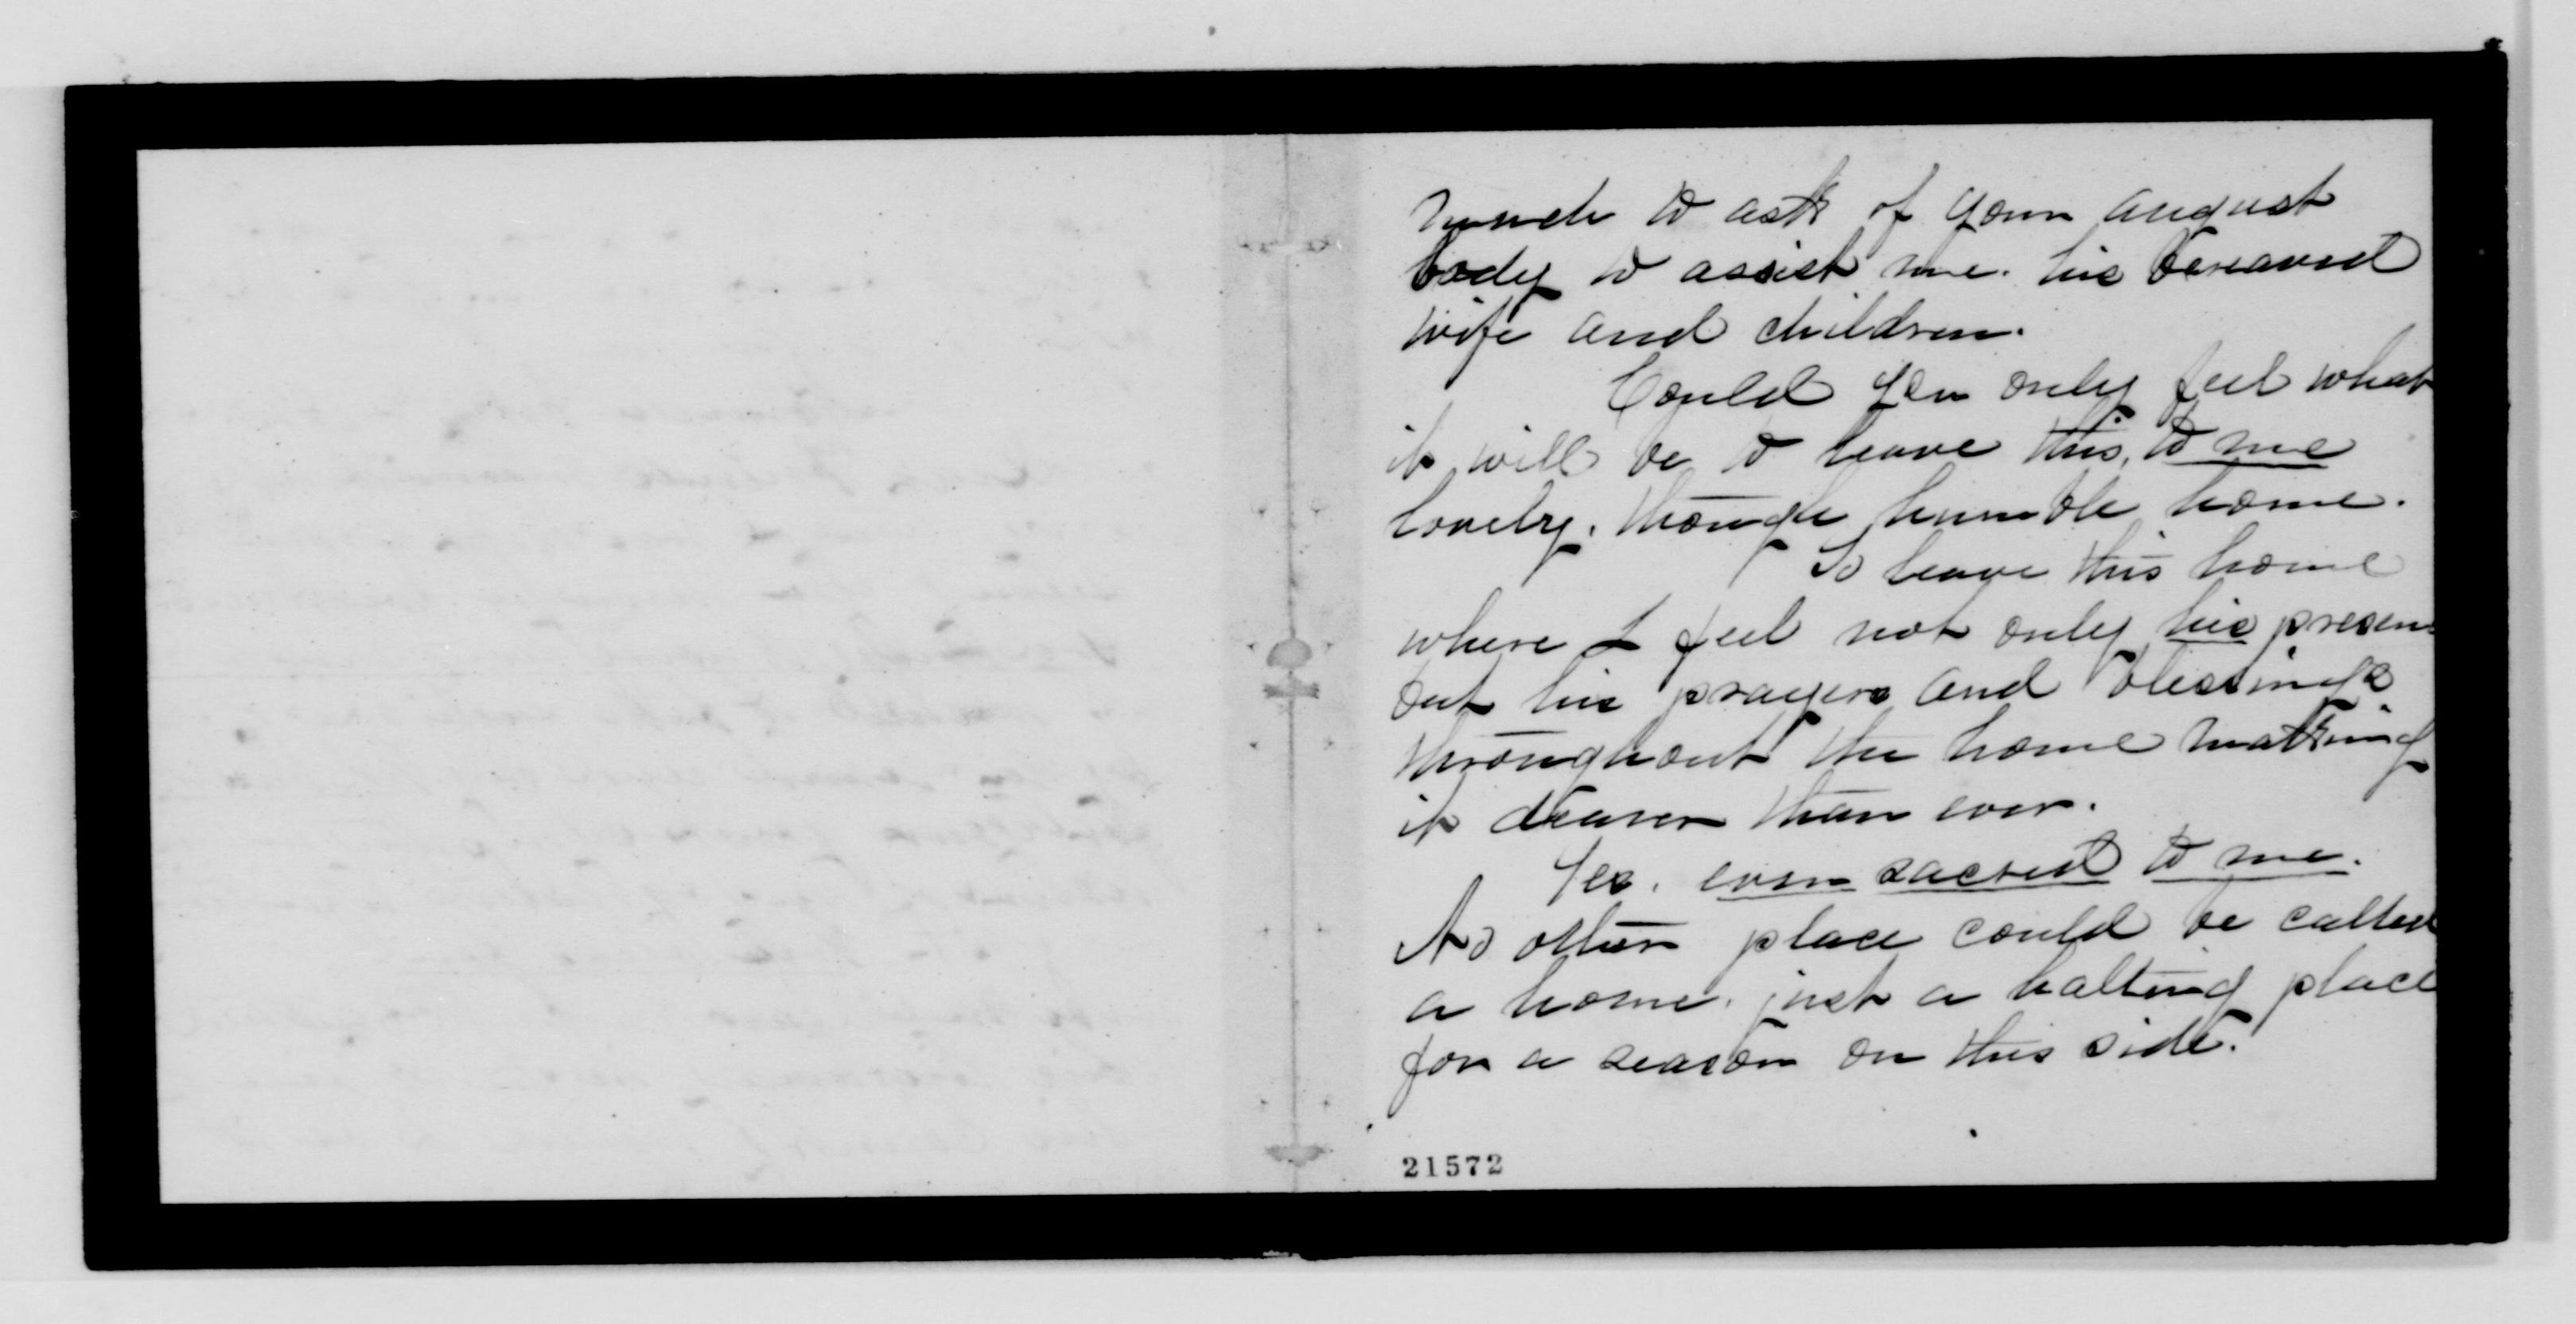 much to ask of your august
body to assist me. his bereaved
wife and children.
Could you only feel what
it will be to leave this, to me
lovely, though humble home.
To leave this home
where I feel not only his presen
but his prayers and blessings
throughout the home making
it dearer than ever.
Yes, even sacred to me.
No other place could be called
a home, just a halting place
for a season on this side.
21572